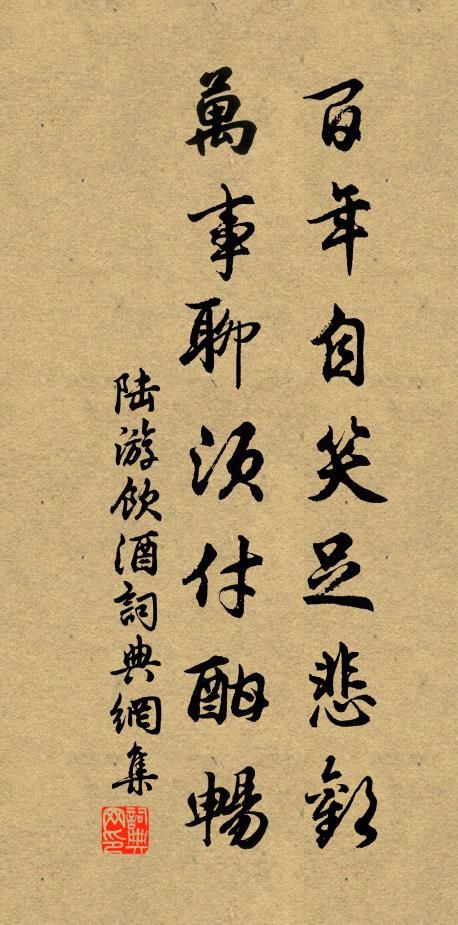 百年自笑足悲歡
萬事聊須付酣暢
陸游飲酒詞典網集
詞典網印